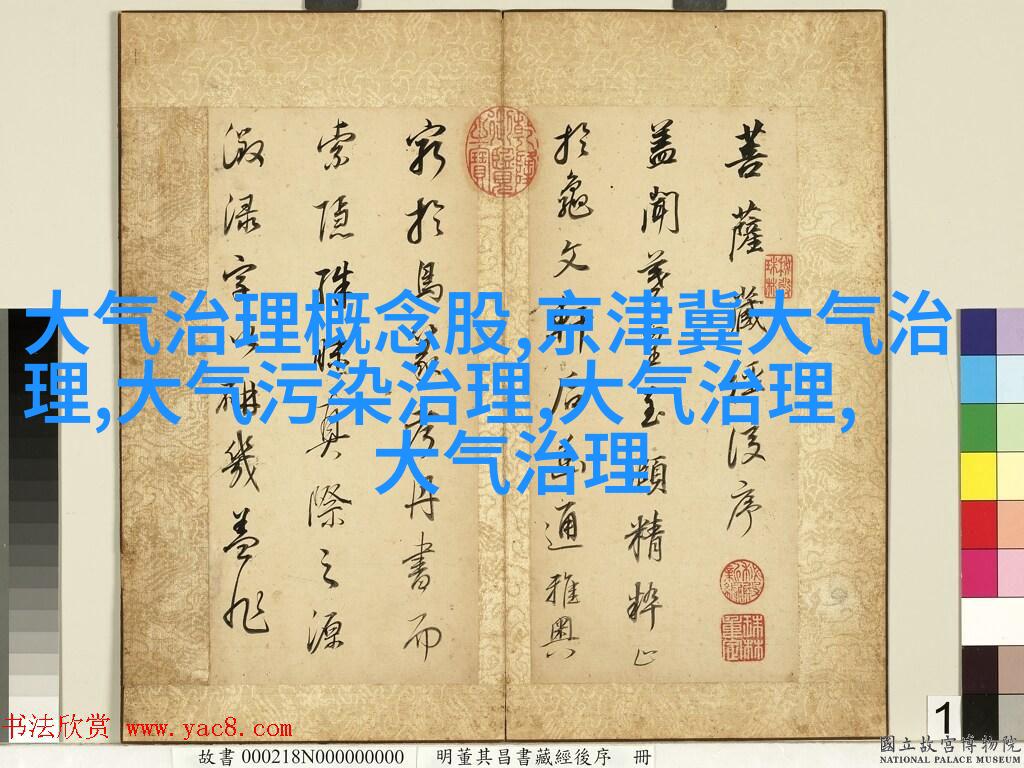 大气治理概念股,京津冀大气治
理,大气污染治理,大气治理,
大气治理
菩薩藏經後序
蓋聞羲皇至賾精粹止
於龜文軒后
通雅奧
窮於鳥篆考丹書而
索隱
真際之源
字以
幾蓋非
书法欣赏 www.yac8.com
故書 000218N000000000 明董其昌書藏經後序 冊
1
國立故宮博物院
NATIONAL PALACE MUSEUM